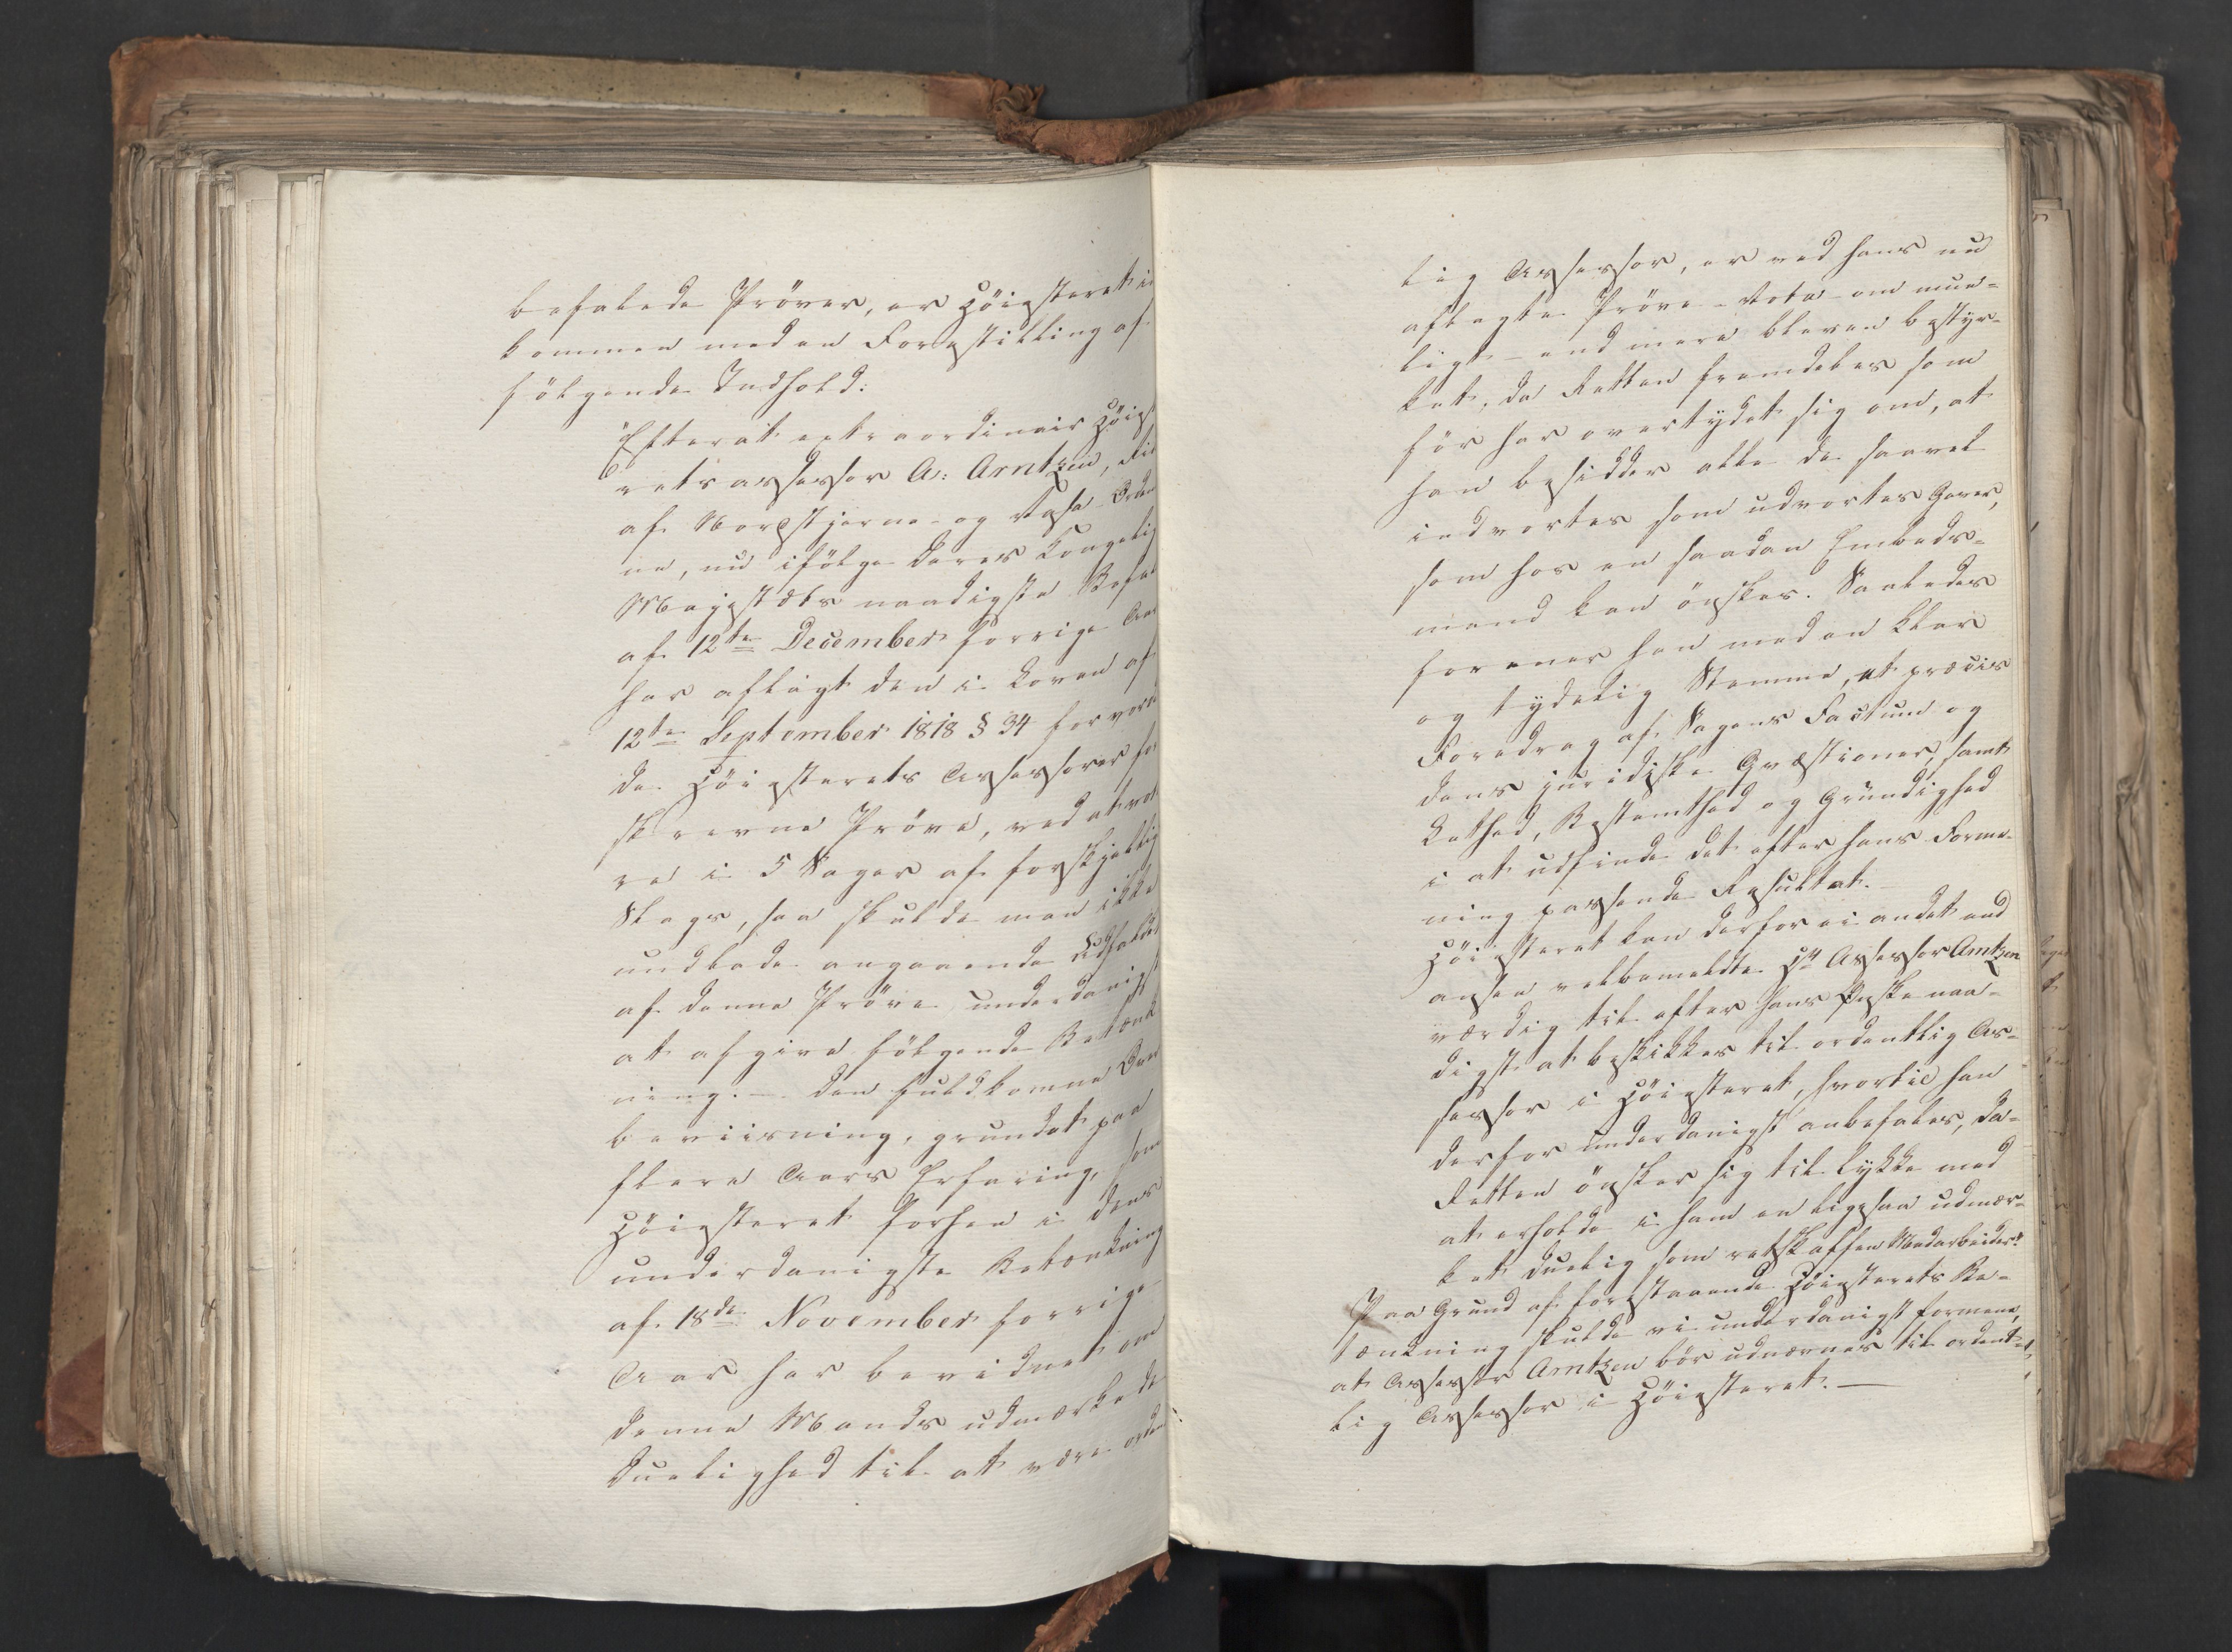 befalede Prøver, er Höiesteret i
kommen med en Forestilling af
følgende Indhold:
"Efterat extraordinair Höieste
retsassessor A: Arntzen, Rid
af Nordstjerne- og Vasa-Orden
ne, nu ifølge Deres Kongelig
Majestæts naadigste Befal
af 12te December forrige Aar
har aflagt den i Loven af
12te September 1818 § 34 for vord
de Höiesterets Assessorer fo
skrevne Prøve, ved at vot
re i 5 Sager af forskjellig
Slags, saa skulde man ikke
undlade angaaende Udfaldet
af denne Prøve underdanigst
at afgive følgende Betænk
ning. — Den fuldkomne Over
beviisning, grundet paa
flere Aars Erfaring, som
Höiesteret forhen i dens
underdanigste Betænkning
af 18de November forrige
Aar har bevidnet om
denne Mands udmærkede
Duelighed til at være orden
lig Assessor, er ved hans nu
aflagte Prøve-Vota om mue-
ligt end mere bleven bestyr-
ket, da Retten fremdeles som
før har overtydet sig om, at
han besidder alle de saavel
indvortes som udvortes Gaver,
som hos en saadan Embeds-
mand kan ønskes. Saaledes
forener han med en klar
og tydelig Stemme, et præcis
Foredrag af Sagens Factum og
dens juridiske Qvæstioner, samt
Lethed, Bestemthed og Grundighed
i at udfinde det efter hans Forme-
ning passende Resultat.
Höiesteret kan derfor ei andet end
ansee velbemeldte Hr Assessor Arntzen
værdig til efter hans Ønske naa-
digst at beskikkes til ordentlig As-
sessor i Höiesteret, hvortil han
derfor underdanigst anbefales, da
Retten ønsker sig til Lykke med
at erholde i ham en ligesaa udmær-
ket duelig som retskaffen Medarbeider."
Paa Grund af forestaaende Höiesterets Be-
tænkning skulde vi underdanigst formene,
at Assessor Arntzen bør udnævnes til ordent-
lig Assessor i Höiesteret. —